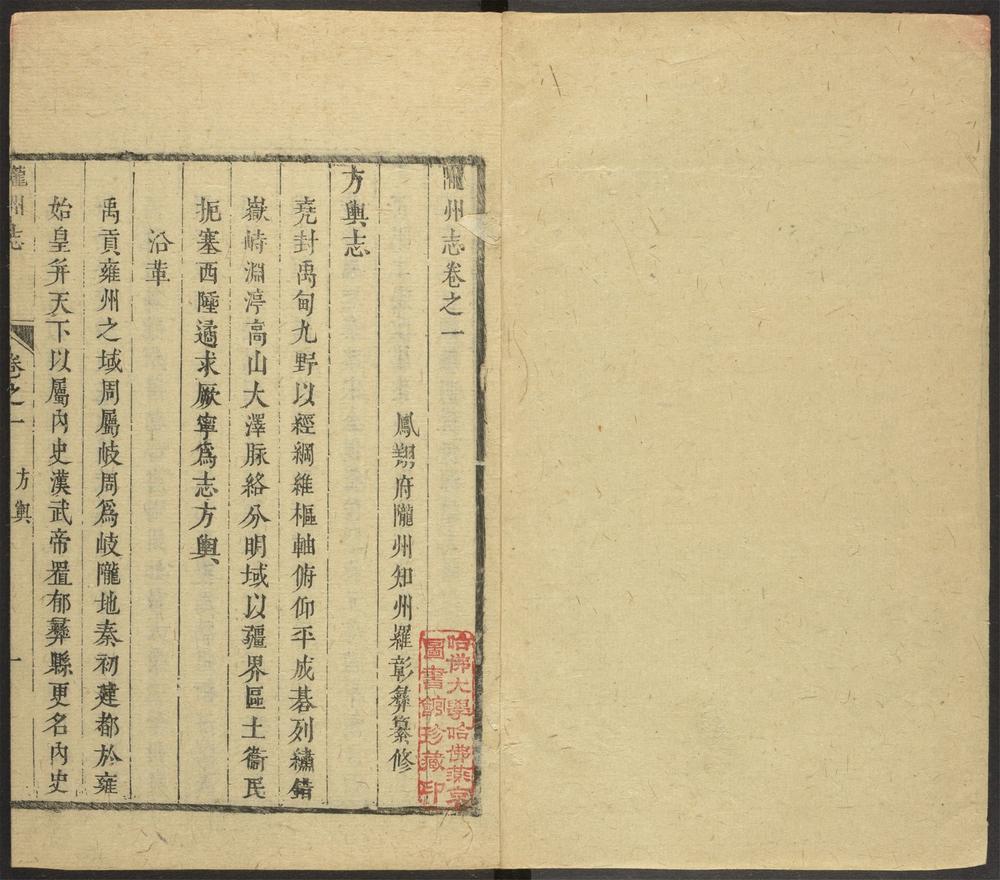 隴州志卷之一
鳳翔府隴州知州羅彰彝纂修
方輿志
堯封禹甸九野以經綱維樞軸俯仰平成碁列繡錯
嶽峙淵渟高山大澤脉絡分明域以疆界區土衞民
扼塞西陲遹求厥寧爲志方輿
沿革
禹貢雍州之域周屬岐周爲岐隴地秦初建都於雍
始皇并天下以屬內史漢武帝置郁彝縣更名內史
隴州志
卷之一
方輿
一
哈佛大學哈佛燕京
圖書館珍藏印